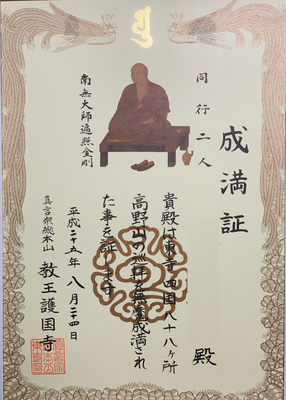 成満証
殿
同行二人
南無大師遍照金剛
貴殿は東寺四国八十八ヶ所
高野山の巡拝を無魔成満され
た事を証します
平成二十五年八月二十四日
真言宗総本山 教王護国寺